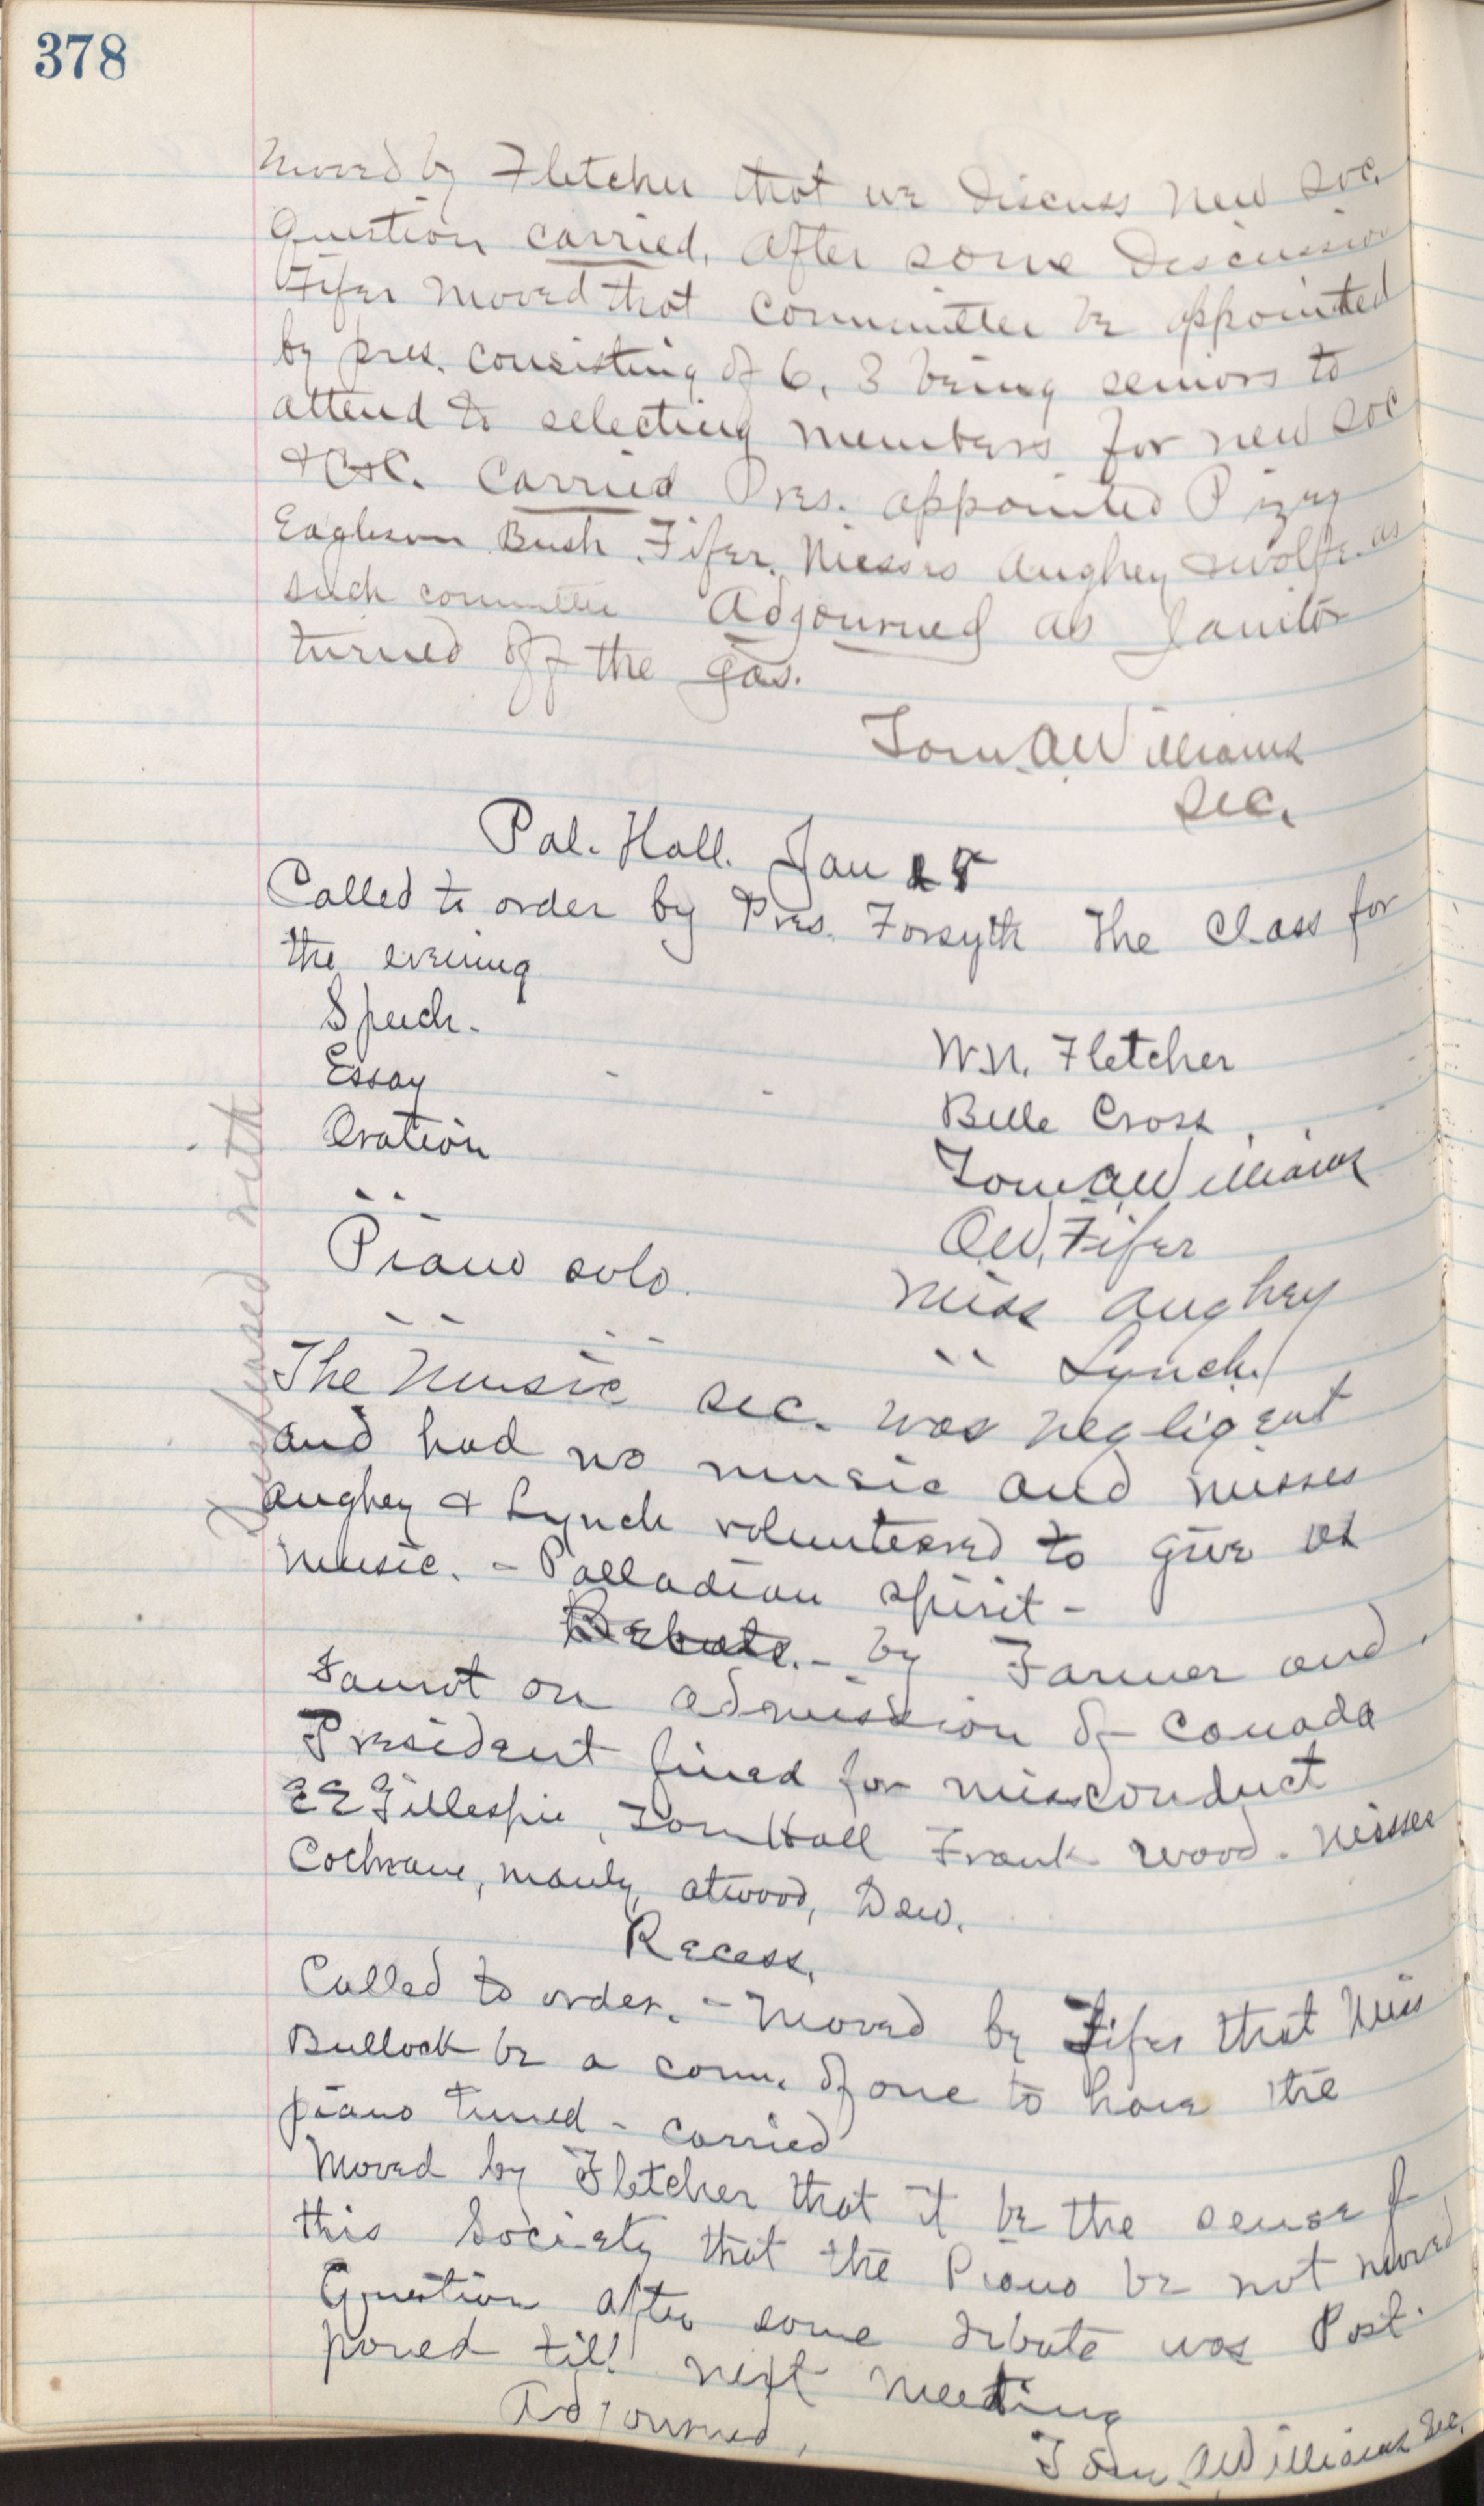 378
Moved by Fletcher that we discuss new Soc.
Question carried. After some discussion
Fifer moved that committee be appointed
by pres. consisting of 6, 3 being seniors to
attend to selecting members for new Soc
&c&c. Carried Pres. appointed Pizey
Eagleson Bush, Fifer, Misses Aughey & Wolfe as
such committee Adjourned as Janitor
turned off the gas.
Tom A Williams
Sec.
Pal. Hall. Jan
Called to order by Pres. Forsyth The Class for
the evening
Speech. W.N. Fletcher
Essay - - Belle Cross
Oration Tom A Williams
" O.W. Fifer
Piano solo. Miss Aughey
" " " Lynch
The Music sec. was negligent
and had no music and misses
Aughey & Lynch volunteered to give us
music. - Palladian spirit -
Debate. - by Farmer and
on admission of Canada
President fined for missconduct
E E Gillespie, Tom Hall Frank Wood. Misses
Cochrane, Manly, Atwood, Dew.
Recess.
Called to order. - Moved by Fifer that Miss
Bullock be a com. of one to have the
piano tuned - carried
Moved by Fletcher that it be the sense of
this Society that the Piano be not moved
Question after some debate was Post-
poned till next meeting
Adjourned,
Tom A Williams Sec.
Dispensed with